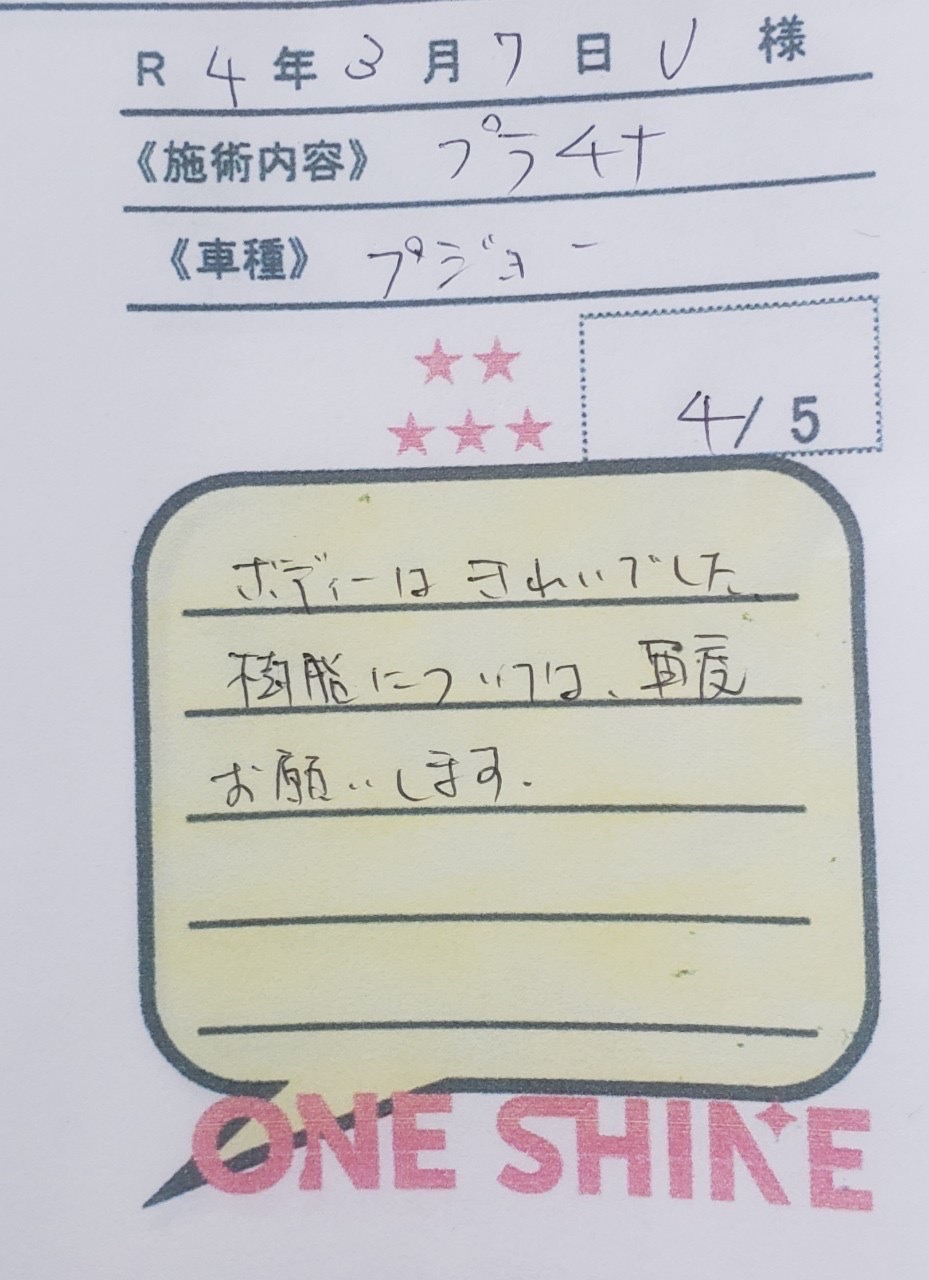 R 4 年 3 月 7 日 U 様
《施術内容》 プラチナ
《車種》 プジョー
4/5
ボディーはきれいでした、
樹脂については、再度
お願いします.
ONE SHINE